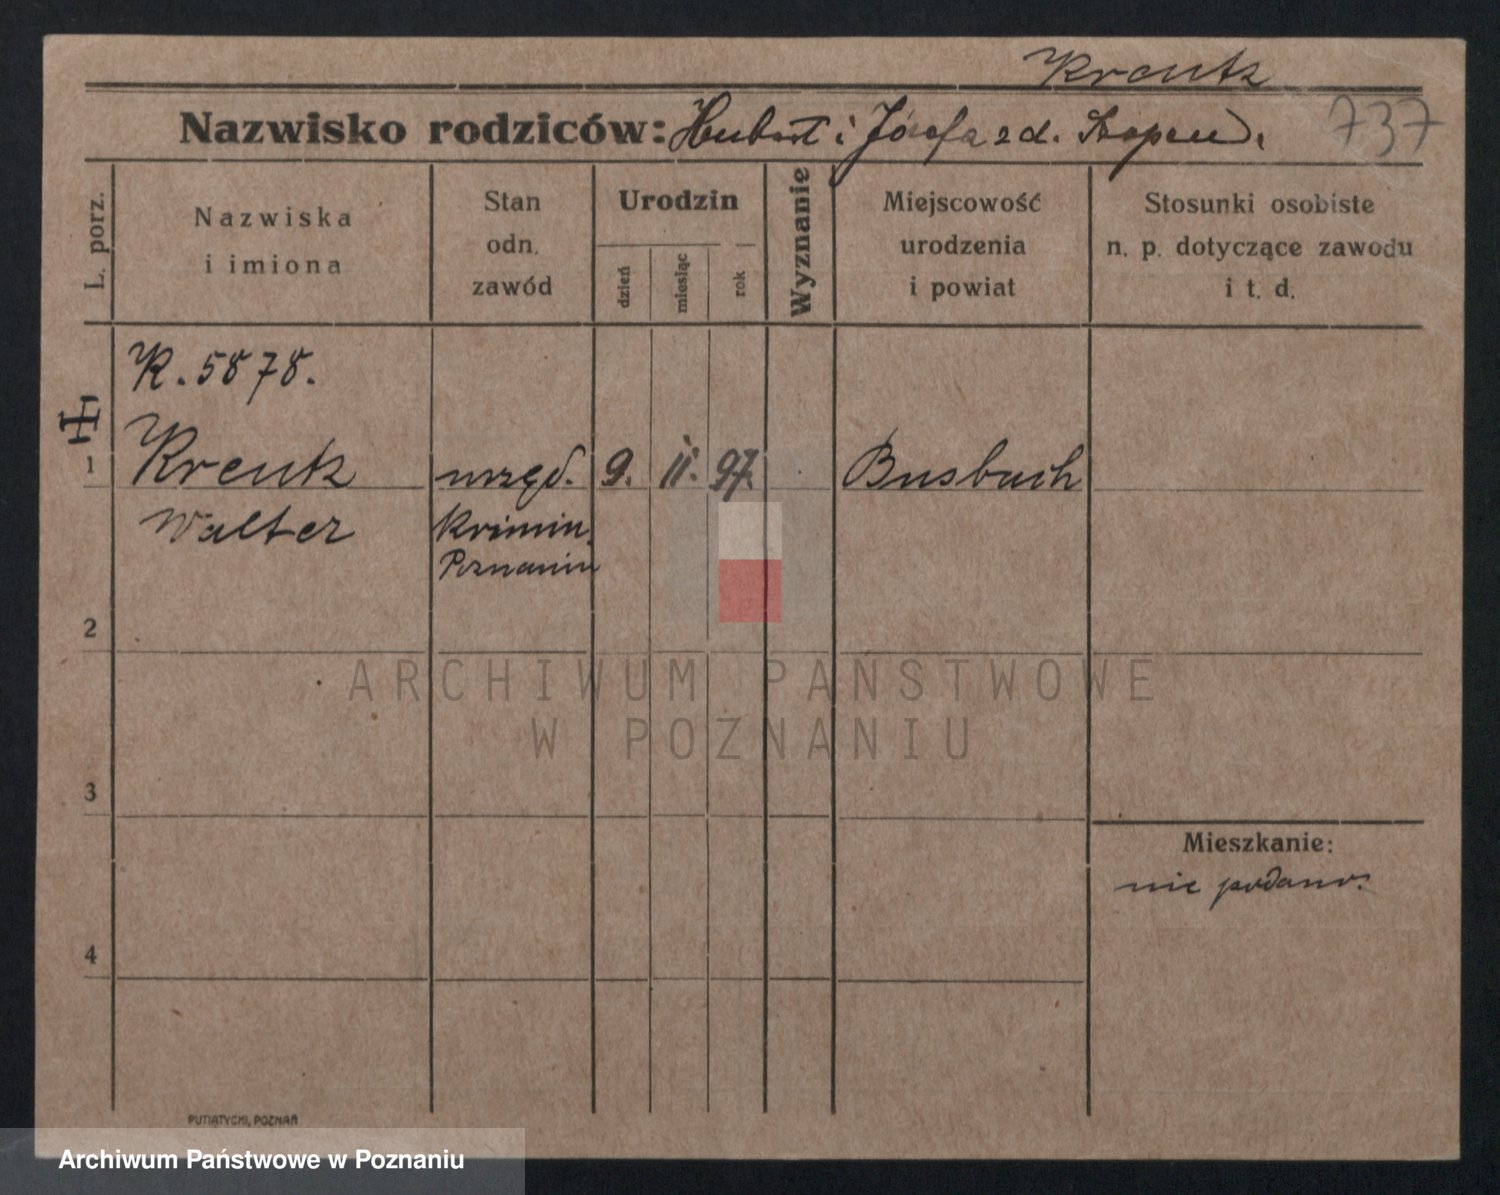 Kreutz
Nazwisko rodziców: Hubert i Józefa z d.
737
L. porz.
Nazwiska
i imiona
Stan
odn.
zawód
Urodzin
dzień
miesiąc
rok
Wyznanie
Miejscowość
urodzenia
i powiat
Stosunki osobiste
n. p. dotyczące zawodu
i t. d.
K. 5878.
1
Kreutz
urzęd.
9.
11.
97.
Busbach
Walter
Krimin.
Poznaniu
2
ARCHIWUM PAŃSTWOWE
W POZNANIU
3
Mieszkanie:
nie podano.
4
PUTIATYCKI, POZNAŃ
Archiwum Państwowe w Poznaniu